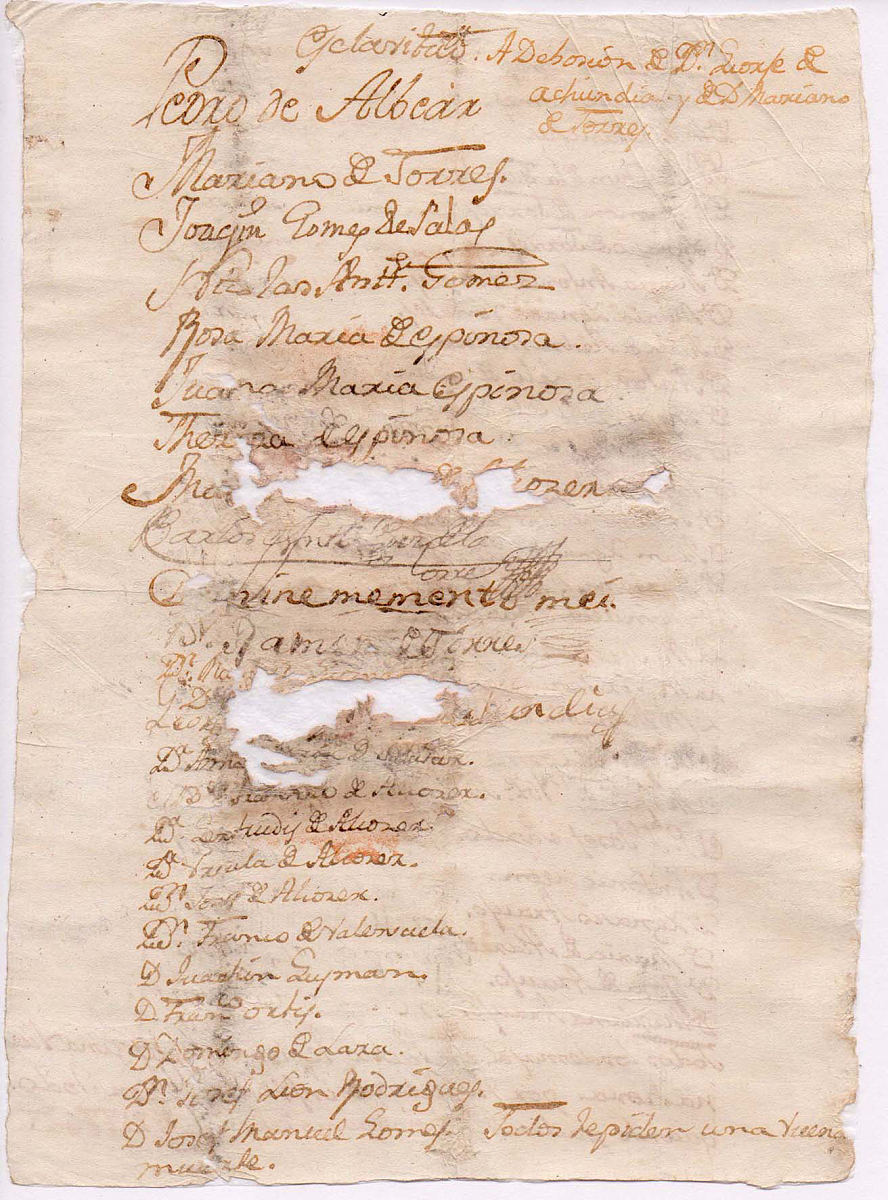 Esclavitud. A Deboción de Dn. Jorse de
achundia y de D Mariano
de Torres
Pedro de Albear
Mariano de Torres.
Joaqin Gomes de Salas
Nicolas Antto. Gomez
Rosa Maria de espinosa.
Juana Maria espinosa
Theresa despinosa
Ma
Carlos
Domine memento mei.
Dn. Ramon de Torres
Dn. Ma
D
Leon
Da. Ana de Salazar.
de Alcozer.
Da. Gertrudis de Alcozer.
Da. Ursula de Alcozer.
Dn. Josef de Alcozer.
Dn. Franco de Valensuela.
D Juachin Gusman.
D. Franco ortis.
D Domingo de Lara.
Dn. Josef Leon Rodrigues.
D Josef Manuel Gomes. Todos te piden una buena
muerte.